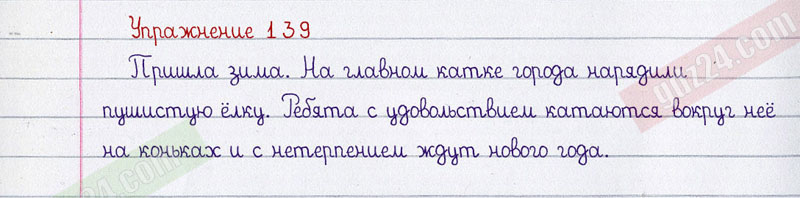 Упражнение 139
Пришла зима. На главном катке города нарядили
пушистую ёлку. Ребята с удовольствием катаются вокруг неё
на коньках и с нетерпением ждут нового года.
gdz24.com
z24.com